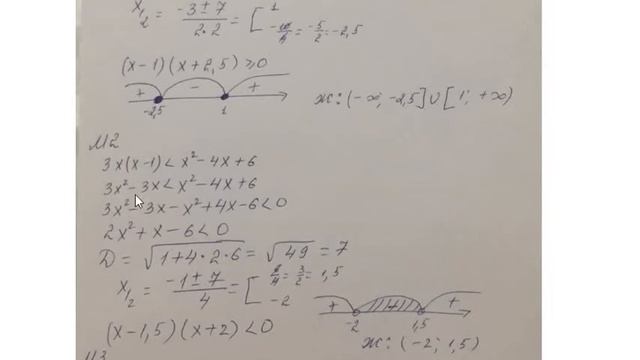 x₁,₂ = (-3 ± 7)/(2·2) = [ 1
-10/4 = -5/2 = -2,5
(x-1)(x+2,5) ⩾ 0
+ - +
-2,5 1
ж: (-∞; -2,5] ∪ [1; +∞)
№2
3x(x-1) < x² - 4x + 6
3x² - 3x < x² - 4x + 6
3x² - 3x - x² + 4x - 6 < 0
2x² + x - 6 < 0
D = √(1+4·2·6) = √49 = 7
x₁,₂ = (-1 ± 7)/4 = [ 6/4 = 3/2 = 1,5
-2
+ +
-2 1,5
(x-1,5)(x+2) < 0
ж: (-2; 1,5)
№3